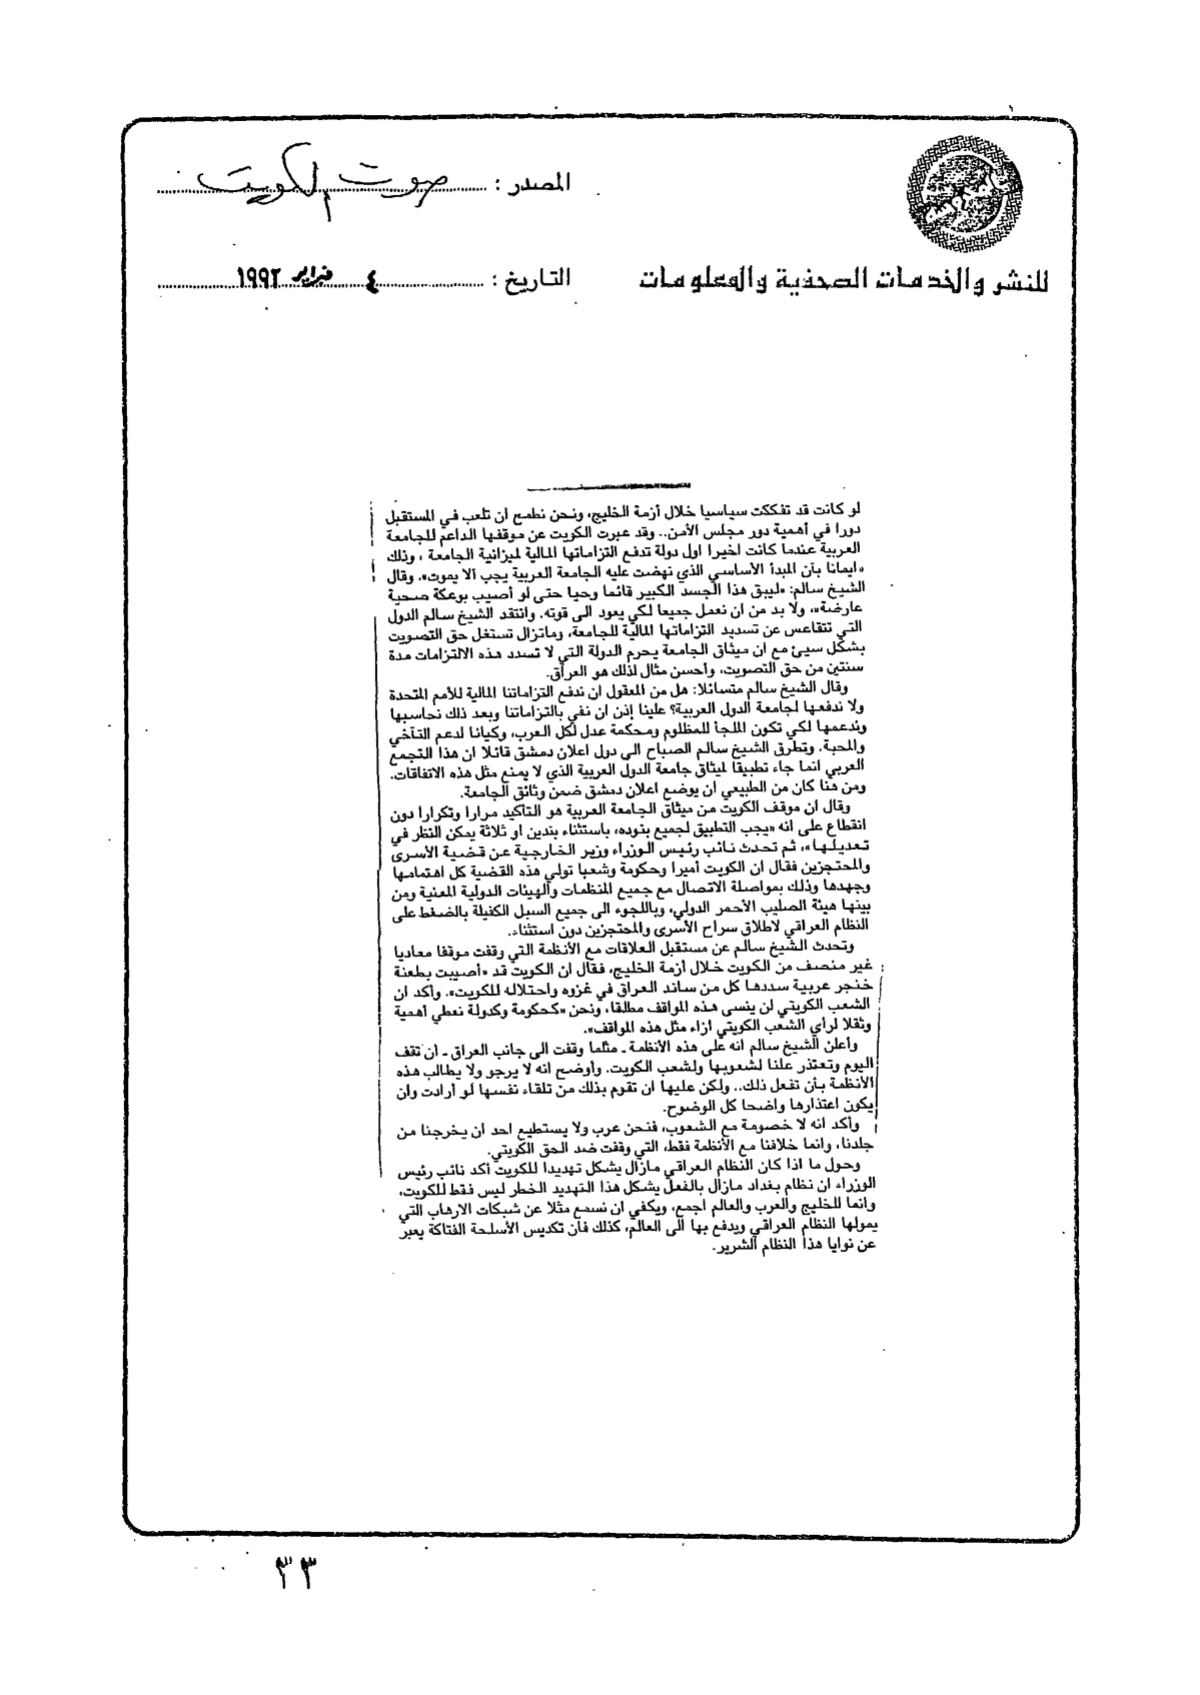 المصدر : صوت الكويت
للنشر والخدمات الصحفية والمعلومات
التاريخ : ٤ فبراير ١٩٩٢
لو كانت قد تفككت سياسيا خلال أزمة الخليج، ونحن نطمح ان تلعب في المستقبل
دورا في أهمية دور مجلس الأمن.. وقد عبرت الكويت عن موقفها الداعم للجامعة
العربية عندما كانت اخيرا اول دولة تدفع التزاماتها المالية لميزانية الجامعة ، وذلك
«ايمانا بأن المبدأ الأساسي الذي نهضت عليه الجامعة العربية يجب ألا يموت». وقال
الشيخ سالم: «ليبق هذا الجسد الكبير قائما وحيا حتى لو أصيب بوعكة صحية
عارضة»، ولا بد من ان نعمل جميعا لكي يعود الى قوته. وانتقد الشيخ سالم الدول
التي تتقاعس عن تسديد التزاماتها المالية للجامعة، وماتزال تستغل حق التصويت
بشكل سيئ مع ان ميثاق الجامعة يحرم الدولة التي لا تسدد هذه الالتزامات مدة
سنتين من حق التصويت، وأحسن مثال لذلك هو العراق.
وقال الشيخ سالم متسائلا: هل من المعقول ان ندفع التزاماتنا المالية للأمم المتحدة
ولا ندفعها لجامعة الدول العربية؟ علينا إذن ان نفي بالتزاماتنا وبعد ذلك نحاسبها
وندعمها لكي تكون الملجأ للمظلوم ومحكمة عدل لكل العرب، وكيانا لدعم التآخي
والمحبة. وتطرق الشيخ سالم الصباح الى دول اعلان دمشق قائلا ان هذا التجمع
العربي انما جاء تطبيقا لميثاق جامعة الدول العربية الذي لا يمنع مثل هذه الاتفاقات.
ومن هنا كان من الطبيعي ان يوضع اعلان دمشق ضمن وثائق الجامعة.
وقال ان موقف الكويت من ميثاق الجامعة العربية هو التأكيد مرارا وتكرارا دون
انقطاع على انه «يجب التطبيق لجميع بنوده، باستثناء بندين او ثلاثة يمكن النظر في
تعديلها»، ثم تحدث نائب رئيس الوزراء وزير الخارجية عن قضية الأسرى
والمحتجزين فقال ان الكويت أميرا وحكومة وشعبا تولي هذه القضية كل اهتمامها
وجهدها وذلك بمواصلة الاتصال مع جميع المنظمات والهيئات الدولية المعنية ومن
بينها هيئة الصليب الأحمر الدولي، وباللجوء الى جميع السبل الكفيلة بالضغط على
النظام العراقي لاطلاق سراح الأسرى والمحتجزين دون استثناء.
وتحدث الشيخ سالم عن مستقبل العلاقات مع الأنظمة التي وقفت موقفا معاديا
غير منصف من الكويت خلال أزمة الخليج، فقال ان الكويت قد «أصيبت بطعنة
خنجر عربية سددها كل من ساند العراق في غزوه واحتلاله للكويت». وأكد ان
الشعب الكويتي لن ينسى هذه المواقف مطلقا، ونحن «كحكومة وكدولة نعطي أهمية
وثقلا لرأي الشعب الكويتي ازاء مثل هذه المواقف».
وأعلن الشيخ سالم انه على هذه الأنظمة ـ مثلما وقفت الى جانب العراق ـ أن تقف
اليوم وتعتذر علنا لشعوبها ولشعب الكويت. وأوضح انه لا يرجو ولا يطالب هذه
الأنظمة بأن تفعل ذلك.. ولكن عليها ان تقوم بذلك من تلقاء نفسها لو أرادت وان
يكون اعتذارها واضحا كل الوضوح.
وأكد انه لا خصومة مع الشعوب، فنحن عرب ولا يستطيع احد ان يخرجنا من
جلدنا، وانما خلافنا مع الأنظمة فقط، التي وقفت ضد الحق الكويتي.
وحول ما اذا كان النظام العراقي مازال يشكل تهديدا للكويت أكد نائب رئيس
الوزراء ان نظام بغداد مازال بالفعل يشكل هذا التهديد الخطر ليس فقط للكويت،
وانما للخليج والعرب والعالم اجمع، ويكفي ان نسمع مثلا عن شبكات الارهاب التي
يمولها النظام العراقي ويدفع بها الى العالم، كذلك فأن تكديس الأسلحة الفتاكة يعبر
عن نوايا هذا النظام الشرير.
٣٣